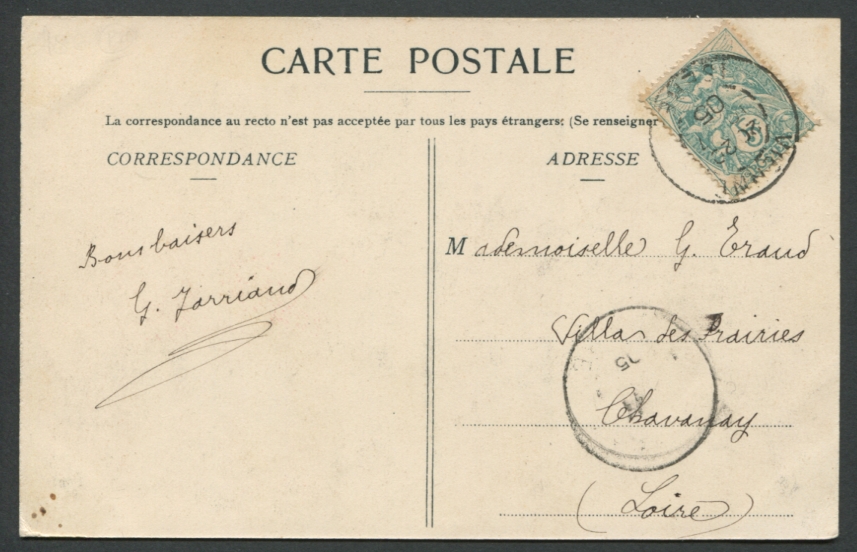 CARTE POSTALE
La correspondance au recto n'est pas acceptée par tous les pays étrangers: (Se renseigner
CORRESPONDANCE
ADRESSE
Bons baisers
G. Jarriand
Mademoiselle G. Eraud
Villa des Prairies
Chavanay
(Loire)
05
05